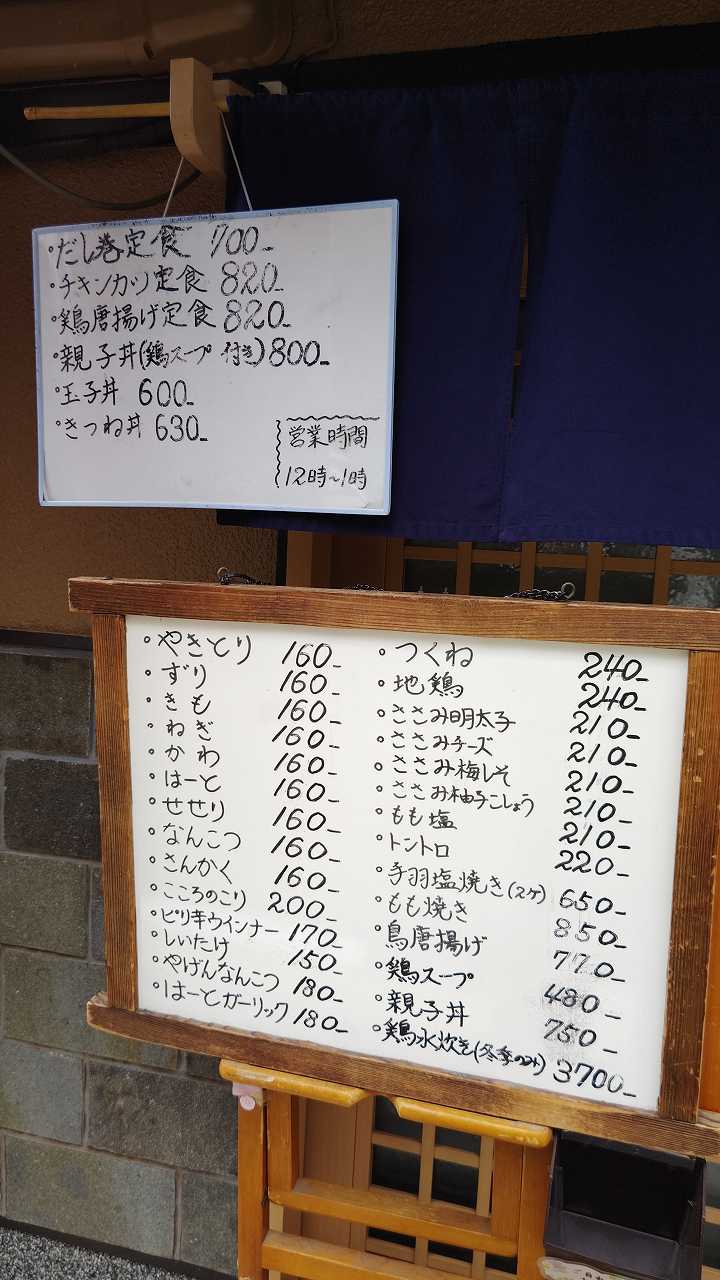 ・だし巻定食 700-
・チキンカツ定食 820-
・鶏唐揚げ定食 820-
・親子丼(鶏スープ 付き)800-
・玉子丼 600-
・きつね丼 630-
営業時間
12時～1時
・やきとり 160-
・ずり 160-
・きも 160-
・ねぎ 160-
・かわ 160-
・はーと 160-
・せせり 160-
・なんこつ 160-
・さんかく 160-
・こころのこり 200-
・ピリ辛ウインナー 170-
・しいたけ 150-
・やげんなんこつ 180-
・はーとガーリック 180-
・つくね 240-
・地鶏 240-
・ささみ明太子 210-
・ささみチーズ 210-
・ささみ梅しそ 210-
・ささみ柚子こしょう 210-
・もも塩 210-
・トントロ 220-
・手羽塩焼き(2ケ) 650-
・もも焼き 850-
・鳥唐揚げ 770-
・鶏スープ 480-
・親子丼 750-
・鶏水炊き(冬季のみ) 3700-